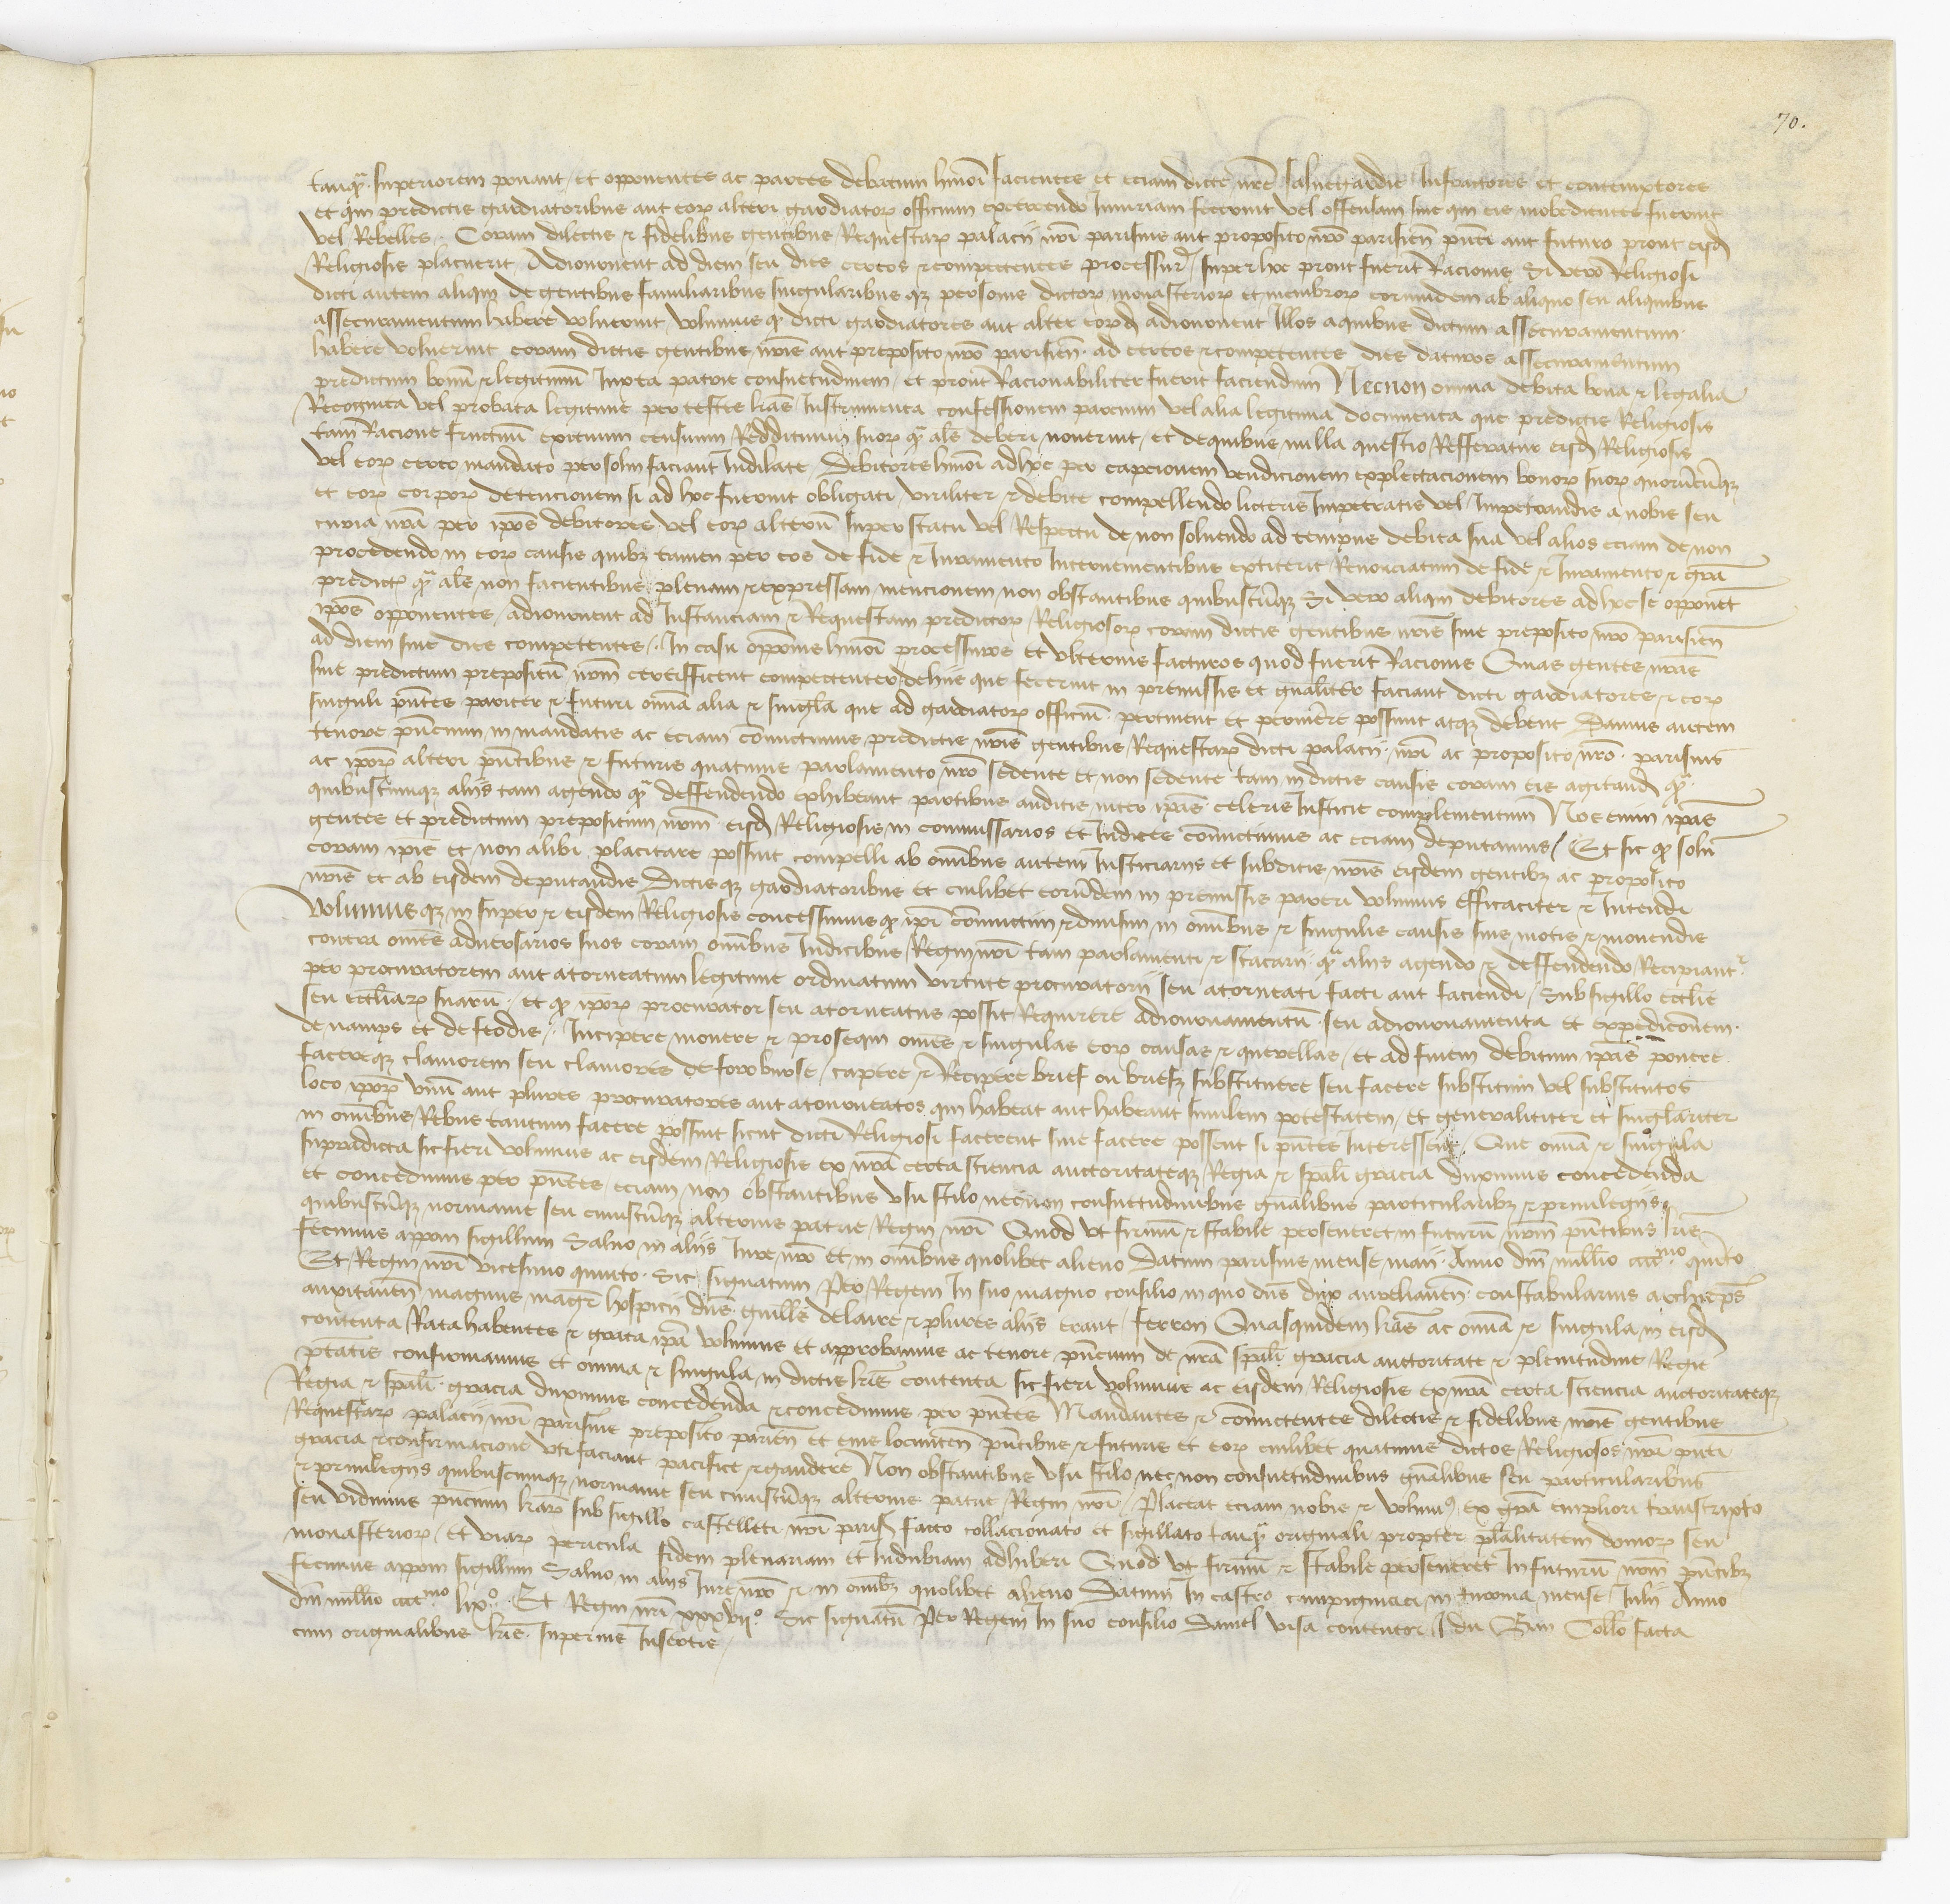 70.
tanqa superiorem ponant et opponentes ac partes debatum hmoi facientes et eciam dicte nre saluegardie Infractores et contemptores
et qui predictis gardiatoribus aut eorum alteri gardiatorum officium exercendo Iniuriam fecerint vel offensam siue qui eis inobedientes fuerint
vel Rebelles. Coram dilectis et fidelibus gentibus Requestarum palacii nri parisius aut preposito nro parisien pnti aut futuro prout eisd
Religiosis placuerit Adiornent ad diem seu dies certos et competentes processur super hoc prout fuerit Racionis Si vero Religiosi
dicti autem aliqui de gentibus familiaribus singularibus qz personis dictorum monasteriorum et membrorum eorumdem ab aliquo seu aliquibus
assecuramentum habere voluerint volumus q dicti gardiatores aut alter eorund adiornent Illos a quibus dictum assecuramentum
habere voluerint coram dictis gentibus nris aut preposito nro parisien ad certos et competentes dies daturos assecuramentum
predictum bonu et legitimu Iuxta patrie consuetudinem et prout Racionabiliter fuerit faciendum Necnon omnia debita bona et legalia
Recognita vel probata legitime per testes lras Instrumenta confessionem parcium vel alia legitima documenta que predictis Religiosis
tam Racione fructuu exituum censuum Reddituum suorum qa als deberi nouerint et de quibus nulla questio Refferatur eisd Religiosis
vel eorum certo mandato persolui faciant Indilate Debitores hmoi ad hoc per capcionem vendicionem explectacionem bonorum suorum quorucuqz
et eorum corporum detencionem si ad hoc fuerint obligati viriliter et debite compellendo licteris Impetratis vel Impetrandis a nobis seu
curia nra per ipos debitores vel eorum alteru super statu vel Respectu de non soluendo ad tempus debita sua vel alios eciam de non
procedendo in eorum causis quibz tamen per eos de fide et Iuramento Interuenientibus extiterit Renonciatum de fide et Iuramento et gra
predict qa als non facientibus plenam et expressam mencionem non obstantibus quibuscuqz Si vero aliqui debitores ad hoc se opponet
ipos opponentes adiornent ad Instanciam et Requestam predictorum Religiosorum coram dictis gentibus nris siue preposito nro parisien
ad diem siue dies competentes In casu opponis hmoi processuros et vlterius facturos quod fuerit Racionis Quas gentes nras
siue predictum prepositu nrm certifficent competenter de hiis que fecerint in premissis et gnaliter faciant dicti gardiatores et eorum
singuli pntes pariter et futuri omia alia et singla que ad gardiatorum officiu pertinent et pertinere possunt atqz debent Damus autem
tenore pncium in mandatis ac eciam comictimus predictis nris gentibus Requestarum dicti palacii nri ac preposito nro parisius
ac iporum alteri pntibus et futuris quatinus parlamento nro sedente et non sedente tam in dictis causis coram eis agitand qa
quibuscumqz aliis tam agendo qa deffendendo exhibeant partibus auditis inter ipas celeris Iusticie complementum Nos enim ipas
gentes et predictum prepositum nrm eisd Religiosis in commissarios et Iudices comictimus ac eciam deputamus Et sic q solu
coram ipis et non alibi placitare possint compelli ab omibus autem Iusticiariis et subditis nris eisdem gentibz ac preposito
nris et ab eisdem deputandis Dictis qz gardiatoribus et cuilibet eorumdem in premissis pareri volumus efficaciter et Intendi
Volumus qz in super et eisdem Religiosis concessimus q ipi coniunctim et diuisim in omibus et singulis causis suis motis et mouendis
contra omes aduersarios suos coram omibus Iudicibus Regni nri tam parlamenti et scacarii qa aliis agendo et deffendendo Recipiantr
per procuratorem aut atorneatum legitime ordinatum virtute procuratorii seu atorneati facti aut faciendi sub sigillo ecclie
seu eccliarum suaru et q iporum procurator seu atorneatus possit Requirere adiornamentu seu adiornamenta et expedicionem
de namps et de feodis Incipere mouere et prosequi omes et singulas eorum causas et querellas et ad finem debitum ipas ponere
facereqz clamorem seu clamores de foro burse capere et Recipere brief ou briefz substituere seu facere substitui vel substitutos
loco iporum vnu aut plures procuratores aut atorneatos qui habeat aut habeant similem potestatem et generaliter et singlariter
in omibus Rebus tantum facere possint sicut dicti Religiosi facerent siue facere possent si pntes Interessent Que omia et singula
supradicta sic fieri volumus ac eisdem Religiosis ex nra certa sciencia auctoritateqz Regia et spali gracia duximus concedenda
et concedimus per pntes eciam non obstantibus vsu stilo necnon consuetudinibus gnalibus particularibz et priuilegiis
quibuscuqz normanie seu cuiuscuqz alterius patrie Regni nri Quod vt firmu et stabile perseueret in futuru nrm pntibus lris
fecimus apponi sigillum Saluo in aliis Iure nro et in omibus quolibet alieno Datum parisius mense maii Anno dni millio cccc mo quito
Et Regni nri vicesimo quinto Sic signatum Per Regem In suo magno consilio in quo dns dux aurelianen constabularius archiepus
auxitanen magnus magr hospicii dns guills de laire et plures aliis erant ferron Quasquidem lras ac omia et singula in eisd
contenta Rata habentes et grata ipa volumus et approbamus ac tenore pncium de nra spali gracia auctoritate et plenitudine Regie
ptatis confirmamus et omnia et singula in dictis lris contenta sic fieri volumus ac eisdem Religiosis ex nra certa sciencia auctoritateqz
Regia et spali gracia duximus concedenda et concedimus per pntes Mandantes et comictentes dilectis et fidelibus nris gentibus
Requestarum palacii nri parisius preposito parien et eius locumten pntibus et futuris et eorum cuilibet quatinus dictos Religiosos nra pnti
gracia et confirmacione vti faciant pacifice et gaudere Non obstantibus vsu stilo nec non consuetudinibus gnalibus seu particularibus
et priuilegiis quibuscumqz normanie seu cuiuscuqz alterius patrie Regni nri Placeat eciam nobis et volum9 ex gra empliori transcripto
seu vidimus pncium lrarum sub sigillo castelleti nri paris facto collacionato et sigillato tanqa originali propter pluralitatem domorum seu
monasteriorum et viarum pericula fidem plenariam et Indubiam adhiberi Quod vt firmu et stabile perseueret In futuru nrm pntibz
fecimus apponi sigillum Saluo in aliis Iure nro et in omibz quolibet alieno Datum In castro compigniaci in turonia mense Iulii Anno
dni millio cccc mo lixo Et Regni nri xxxviio Sic signatu Per Regem In suo consilio Daniel visa contentor I du Ban Collo facta
cum originalibus lris superius Insertis